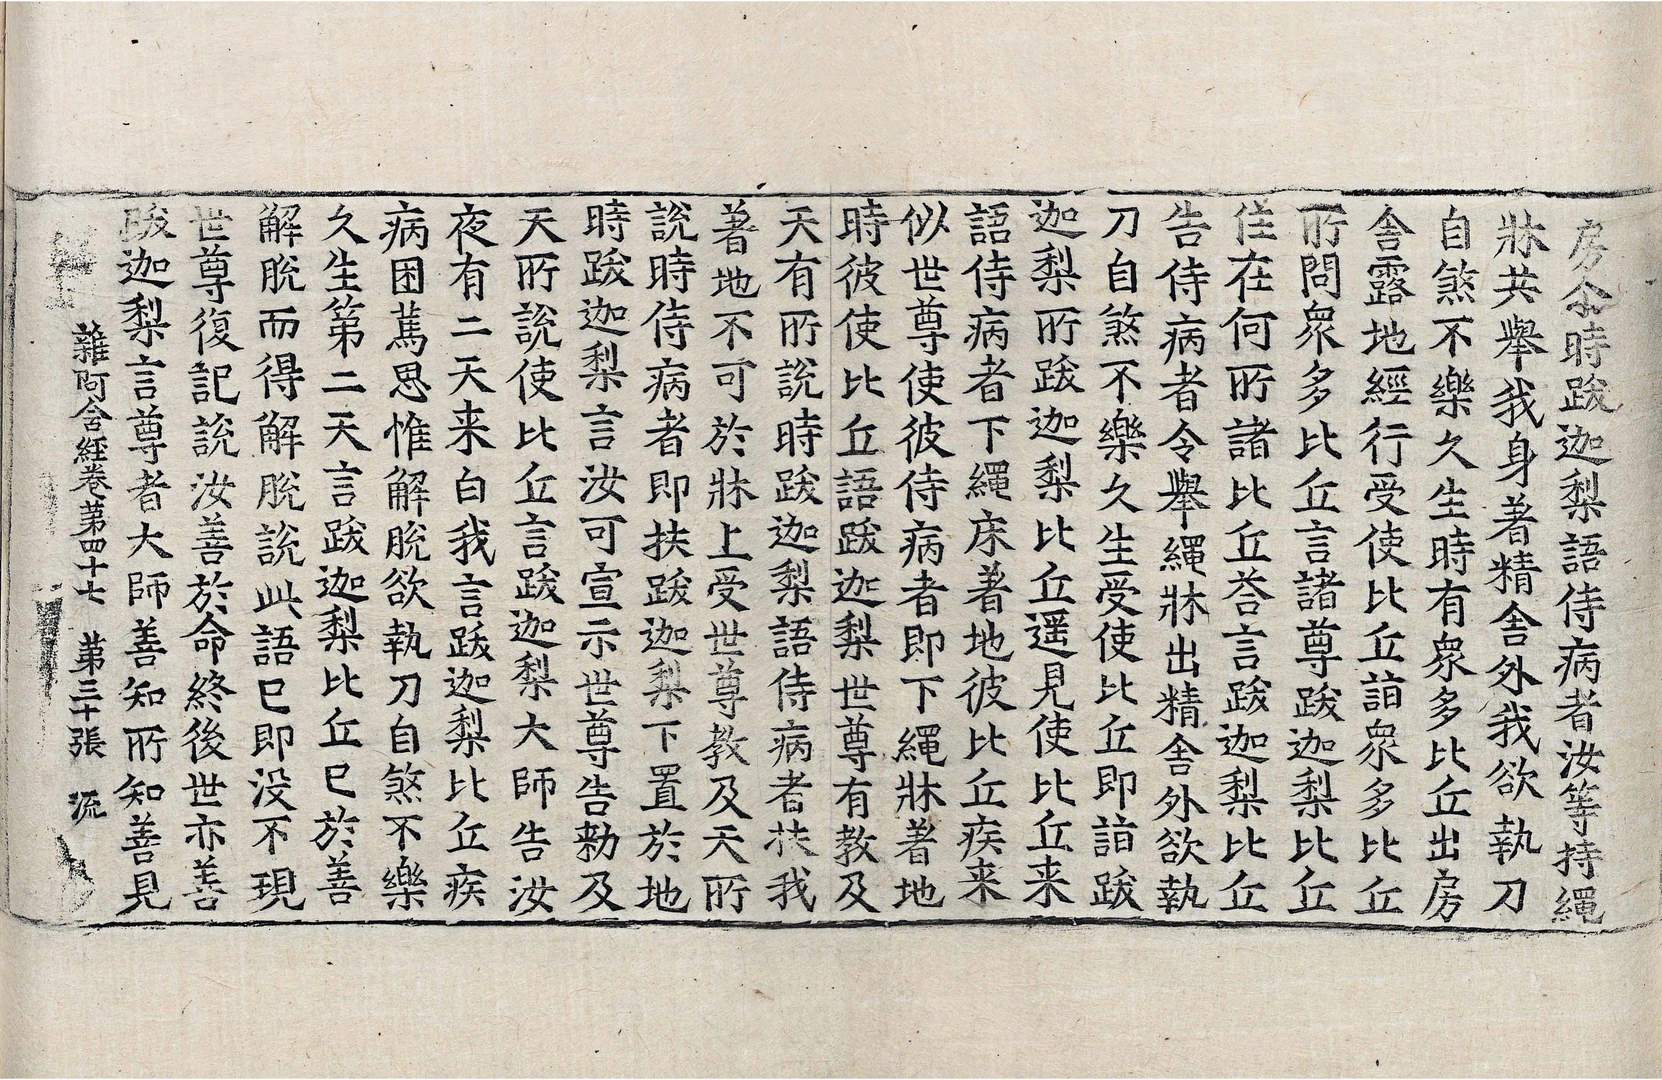 房尒時跋迦梨語侍病者汝等持繩
牀共舉我身著精舍外我欲執刀
自煞不樂久生時有衆多比丘出房
舍露地經行受使比丘詣衆多比丘
所問衆多比丘言諸尊跋迦梨比丘
住在何所諸比丘荅言跋迦梨比丘
告侍病者令舉繩牀出精舍外欲執
刀自煞不樂久生受使比丘即詣跋
迦梨所跋迦梨比丘遥見使比丘来
語侍病者下繩床著地彼比丘疾来
似世尊使彼侍病者即下繩牀著地
時彼使比丘語跋迦梨世尊有教及
天有所說時跋迦梨語侍病者扶我
著地不可於牀上受世尊教及天所
說時侍病者即扶跋迦梨下置於地
時跋迦梨言汝可宣示世尊告勑及
天所說使比丘言跋迦梨大師告汝
夜有二天来白我言跋迦梨比丘疾
病困篤思惟解脫欲執刀自煞不樂
久生第二天言跋迦梨比丘已於善
解脫而得解脫說此語已即没不現
世尊復記說汝善於命終後世亦善
跋迦梨言尊者大師善知所知善見
雜阿含經卷第四十七　第三十張　流